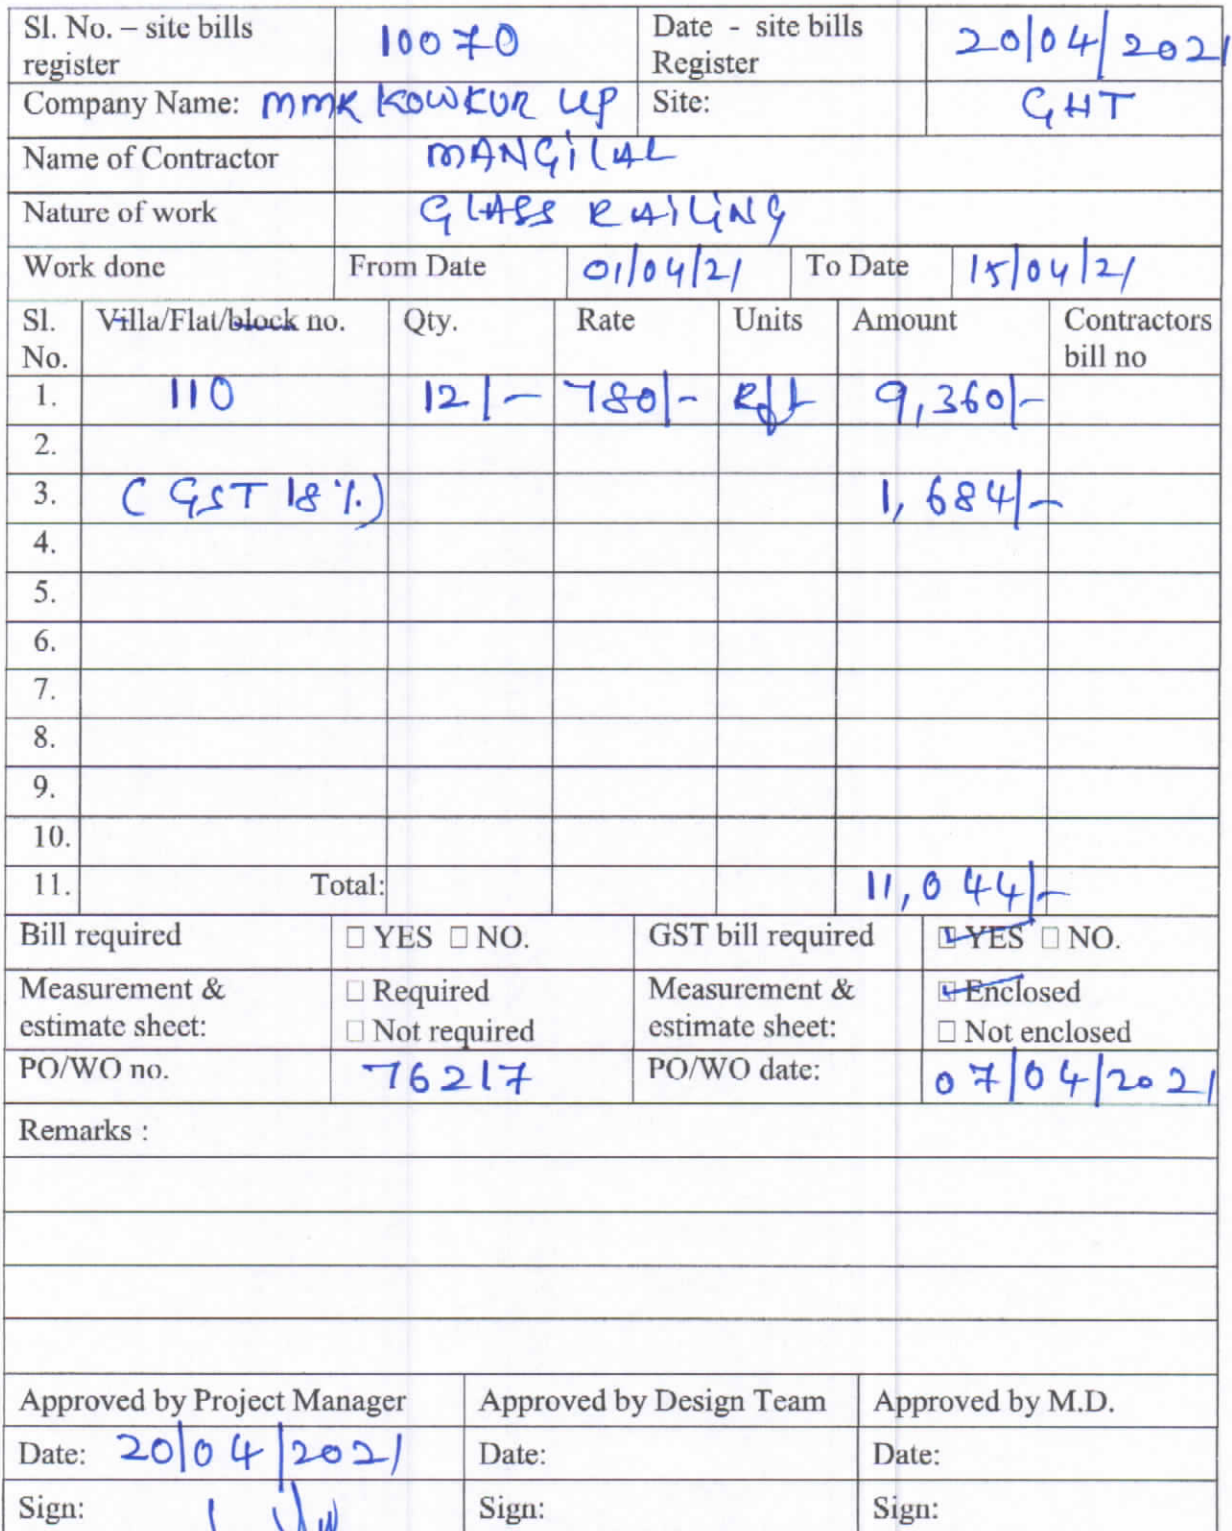 Sl. No. – site bills register 10070 Date - site bills Register 20/04/2021
Company Name: MMK KOWKUR LLP Site: GHT
Name of Contractor MANGILAL
Nature of work GLASS RAILING
Work done From Date 01/04/21 To Date 15/04/21
Sl. No. Villa/Flat/block no. Qty. Rate Units Amount Contractors bill no
1. 110 12/- 780/- Rft 9,360/-
2.
3. (GST 18%) 1,684/-
4.
5.
6.
7.
8.
9.
10.
11. Total: 11,044/-
Bill required ☐ YES ☐ NO. GST bill required ☑ YES ☐ NO.
Measurement & estimate sheet: ☐ Required ☐ Not required Measurement & estimate sheet: ☑ Enclosed ☐ Not enclosed
PO/WO no. 76217 PO/WO date: 07/04/2021
Remarks :
Approved by Project Manager Approved by Design Team Approved by M.D.
Date: 20/04/2021 Date: Date:
Sign: Sign: Sign: